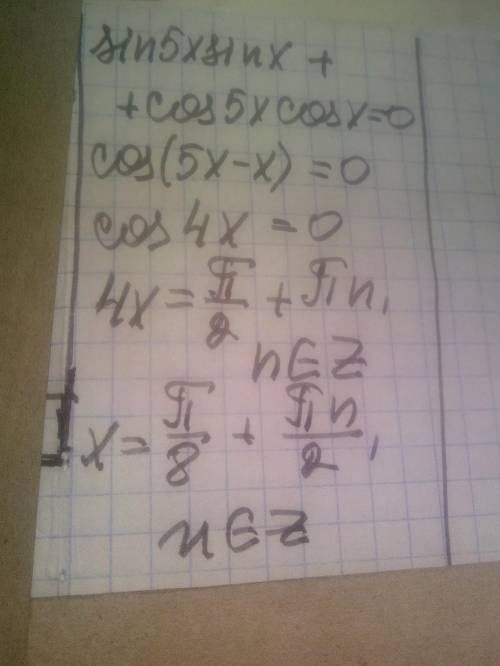 sin5xsinx +
+cos5xcosx=0
cos(5x-x) = 0
cos4x = 0
4x = π/2 + πn,
n∈Z
x = π/8 + πn/2,
n∈Z